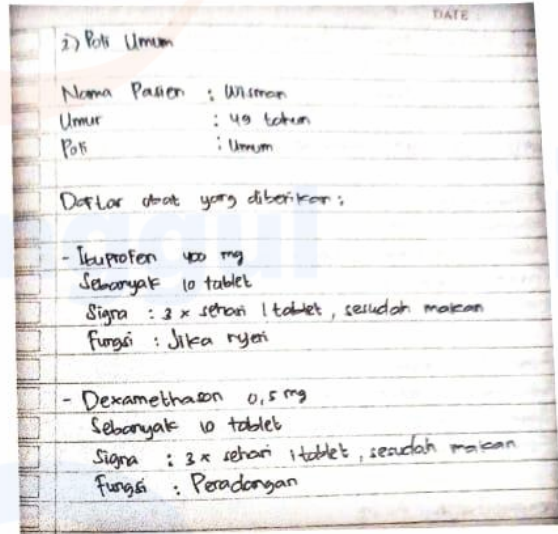 DATE
2) Poli Umum
Nama Pasien : Wisman
Umur : 49 tahun
Poli : Umum
Daftar obat yang diberikan :
- Ibuprofen 400 mg
Sebanyak 10 tablet
Signa : 3 x sehari 1 tablet, sesudah makan
Fungsi : Jika nyeri
- Dexamethason 0,5 mg
Sebanyak 10 tablet
Signa : 3 x sehari 1 tablet, sesudah makan
Fungsi : Peradangan